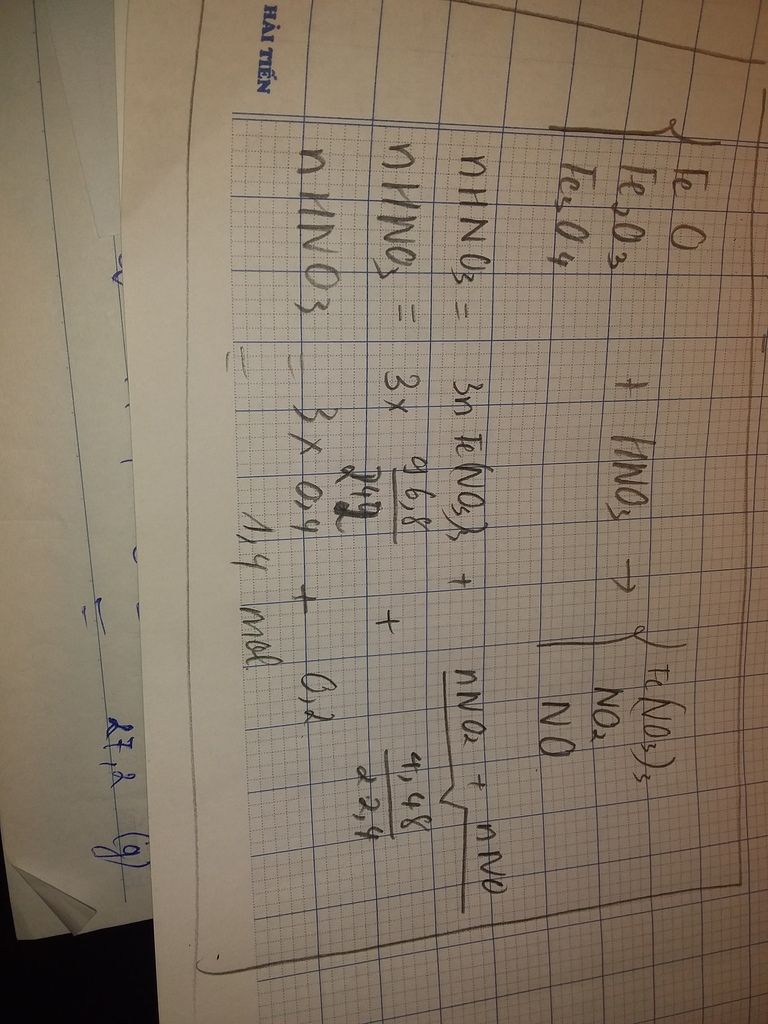 HẢI TIẾN
FeO
Fe2O3 + HNO3 → Fe(NO3)3
Fe3O4 NO2
NO
nHNO3 = 3nFe(NO3)3 + nNO2 + nNO
nHNO3 = 3x 96,8/242 + 4,48/22,4
nHNO3 = 3x0,4 + 0,2
= 1,4 mol
= 27,2 (g)